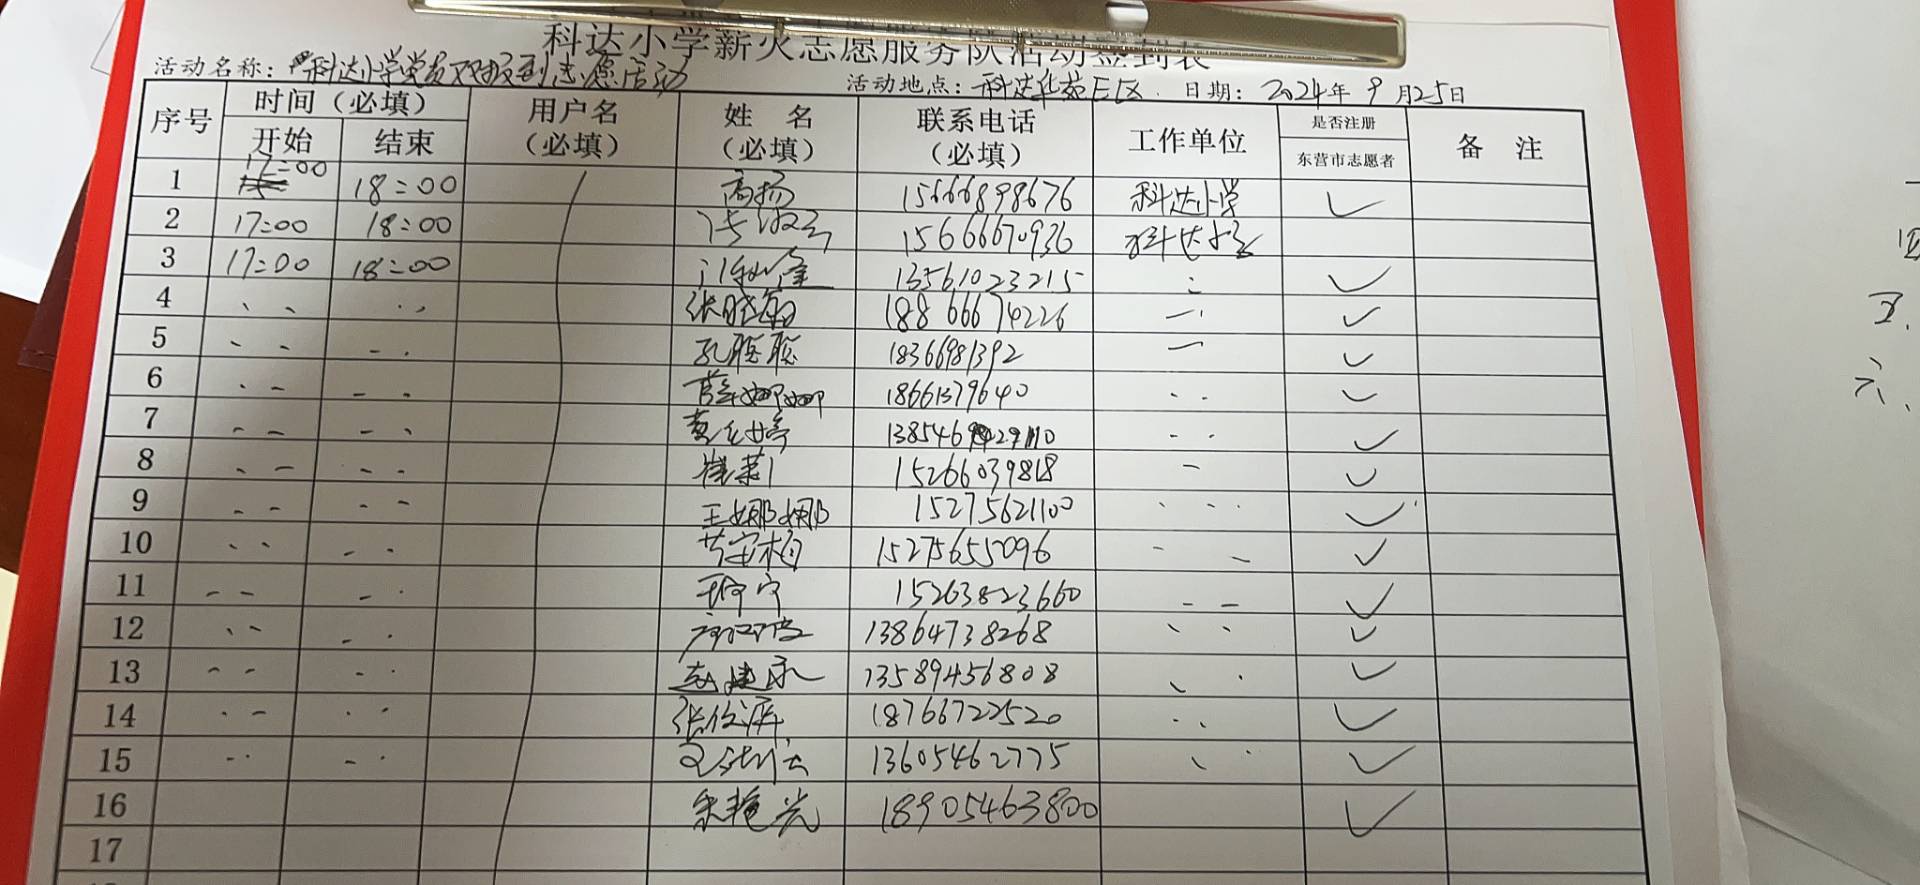 科达小学薪火志愿服务队活动签到表
活动名称：科达小学党员双报到志愿活动 活动地点：科达华苑E区 日期：2024年9月25日
序号 时间（必填） 用户名（必填） 姓名（必填） 联系电话（必填） 工作单位 是否注册东营市志愿者 备注
开始 结束
1 17:00 18:00 高扬 15666898676 科达小学 ✓
2 17:00 18:00 15666670936 科达小学
3 17:00 18:00 13561023215 ✓
4 张晓菊 18866674226 ✓
5 孔聪聪 18366981392 ✓
6 薛娜娜 18661379640 ✓
7 ✓
8 崔莉 15266039818 ✓
9 王娜娜 15275621100 ✓
10 15275655096 ✓
11 15263823660 ✓
12 13864738268 ✓
13 赵建永 13589456808 ✓
14 18766722520 ✓
15 13605462775 ✓
16 朱艳光 18905463800 ✓
17
五、
六、